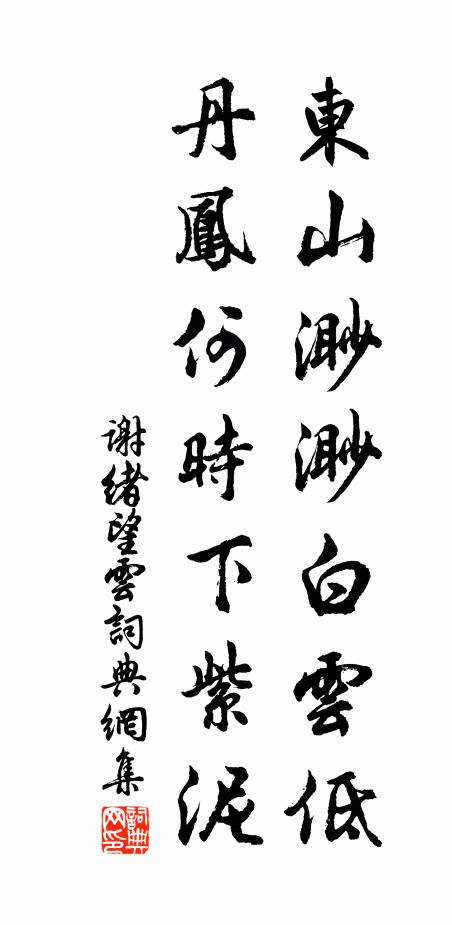 東山渺渺白雲低
丹鳳何時下紫泥
谢緒望雲詞典網集
詞典网印